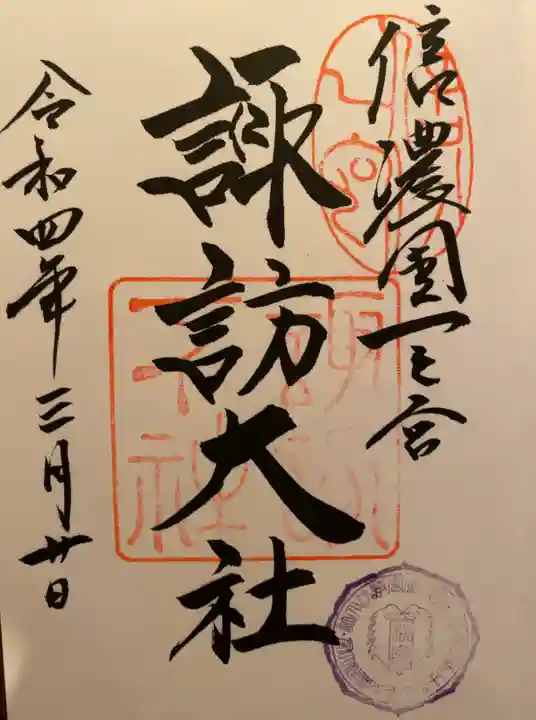 信濃國一之宮
諏訪大社
令和四年三月廿日